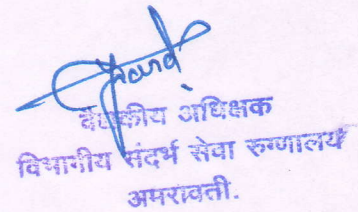 वैद्यकीय अधिक्षक
विभागीय संदर्भ सेवा रुग्णालय
अमरावती.